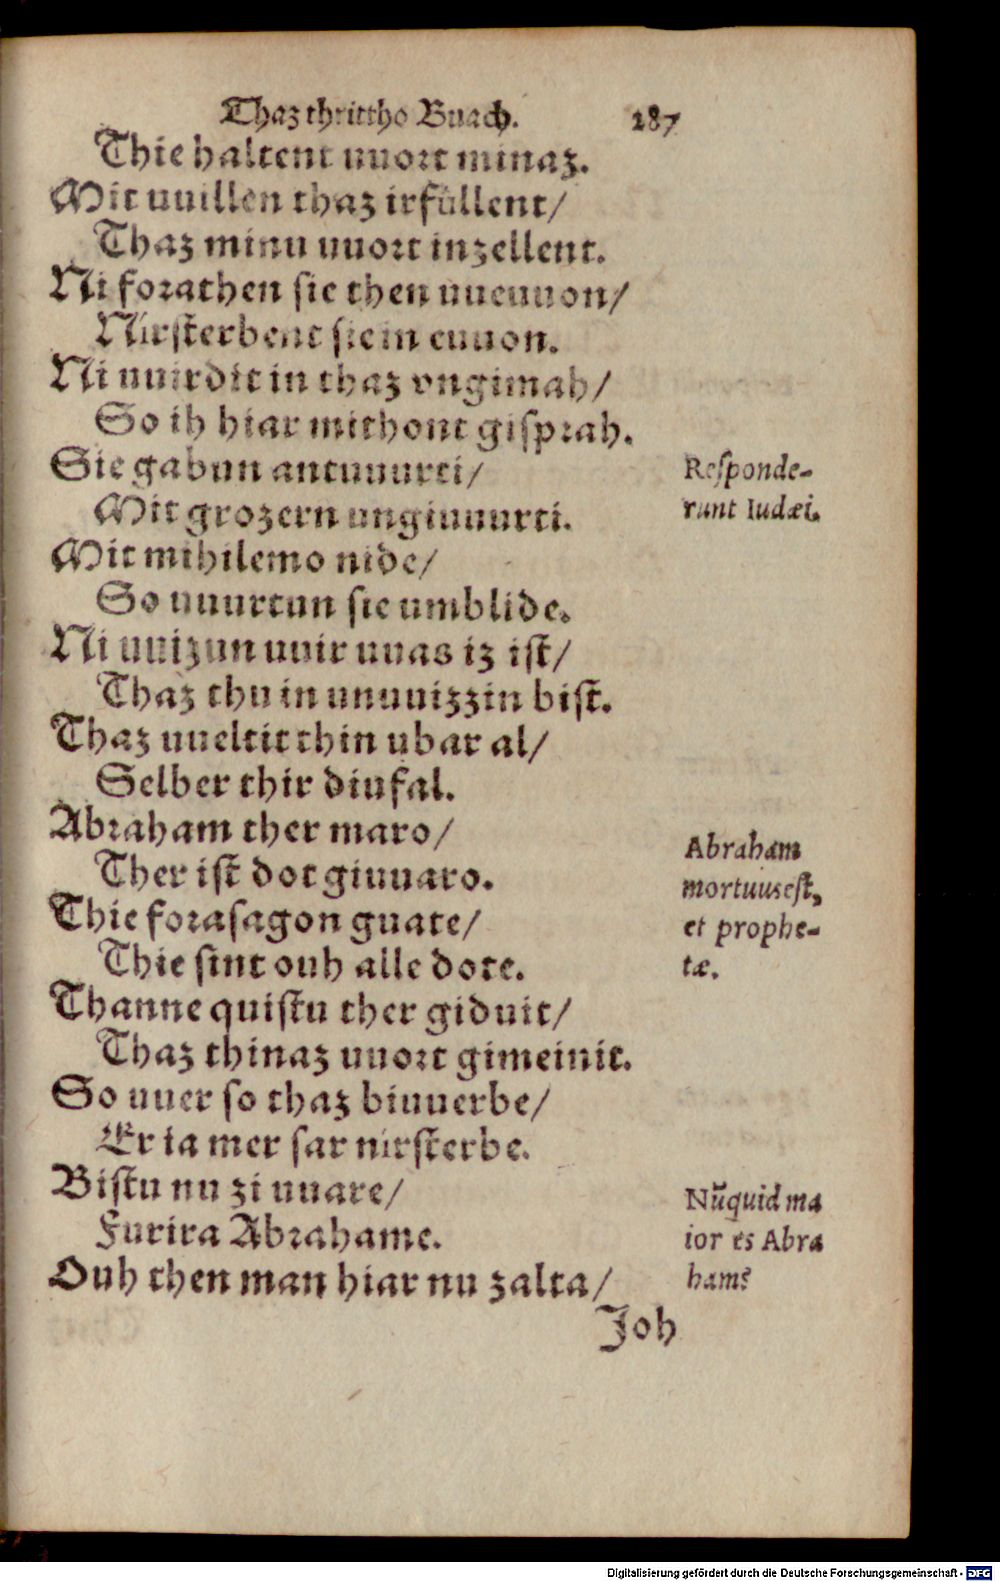 Thaz thrittho Buach. 187
Thie haltent uuort minaz.
Mit uuillen thaz irfúllent/
Thaz minu uuort inzellent.
Ni forathen sie then uueuuon/
Nirsterbent sie in euuon.
Ni uuirdit in thaz vngimah/
So ih hiar mithont gisprah.
Sie gabun antuuurti/
Mit grozern ungiuuurti.
Mit mihilemo nide/
So uuurtun sie umblide.
Ni uuizun uuir uuas iz ist/
Thaz thu in unuuizzin bist.
Thaz uueltit thin ubar al/
Selber thir diufal.
Abraham ther maro/
Ther ist dot giuuaro.
Thie forasagon guate/
Thie sint ouh alle dote.
Thanne quistu ther giduit/
Thaz thinaz uuort gimeinit.
So uuer so thaz biuuerbe/
Er ia mer sar nirsterbe.
Bistu nu zi uuare/
Furira Abrahame.
Ouh then man hiar nu zalta/
Joh
Responde-
runt Iudæi.
Abraham
mortuus est,
et prophe-
tæ.
Nũquid ma
ior es Abra
ham?
Digitalisierung gefördert durch die Deutsche Forschungsgemeinschaft - DFG